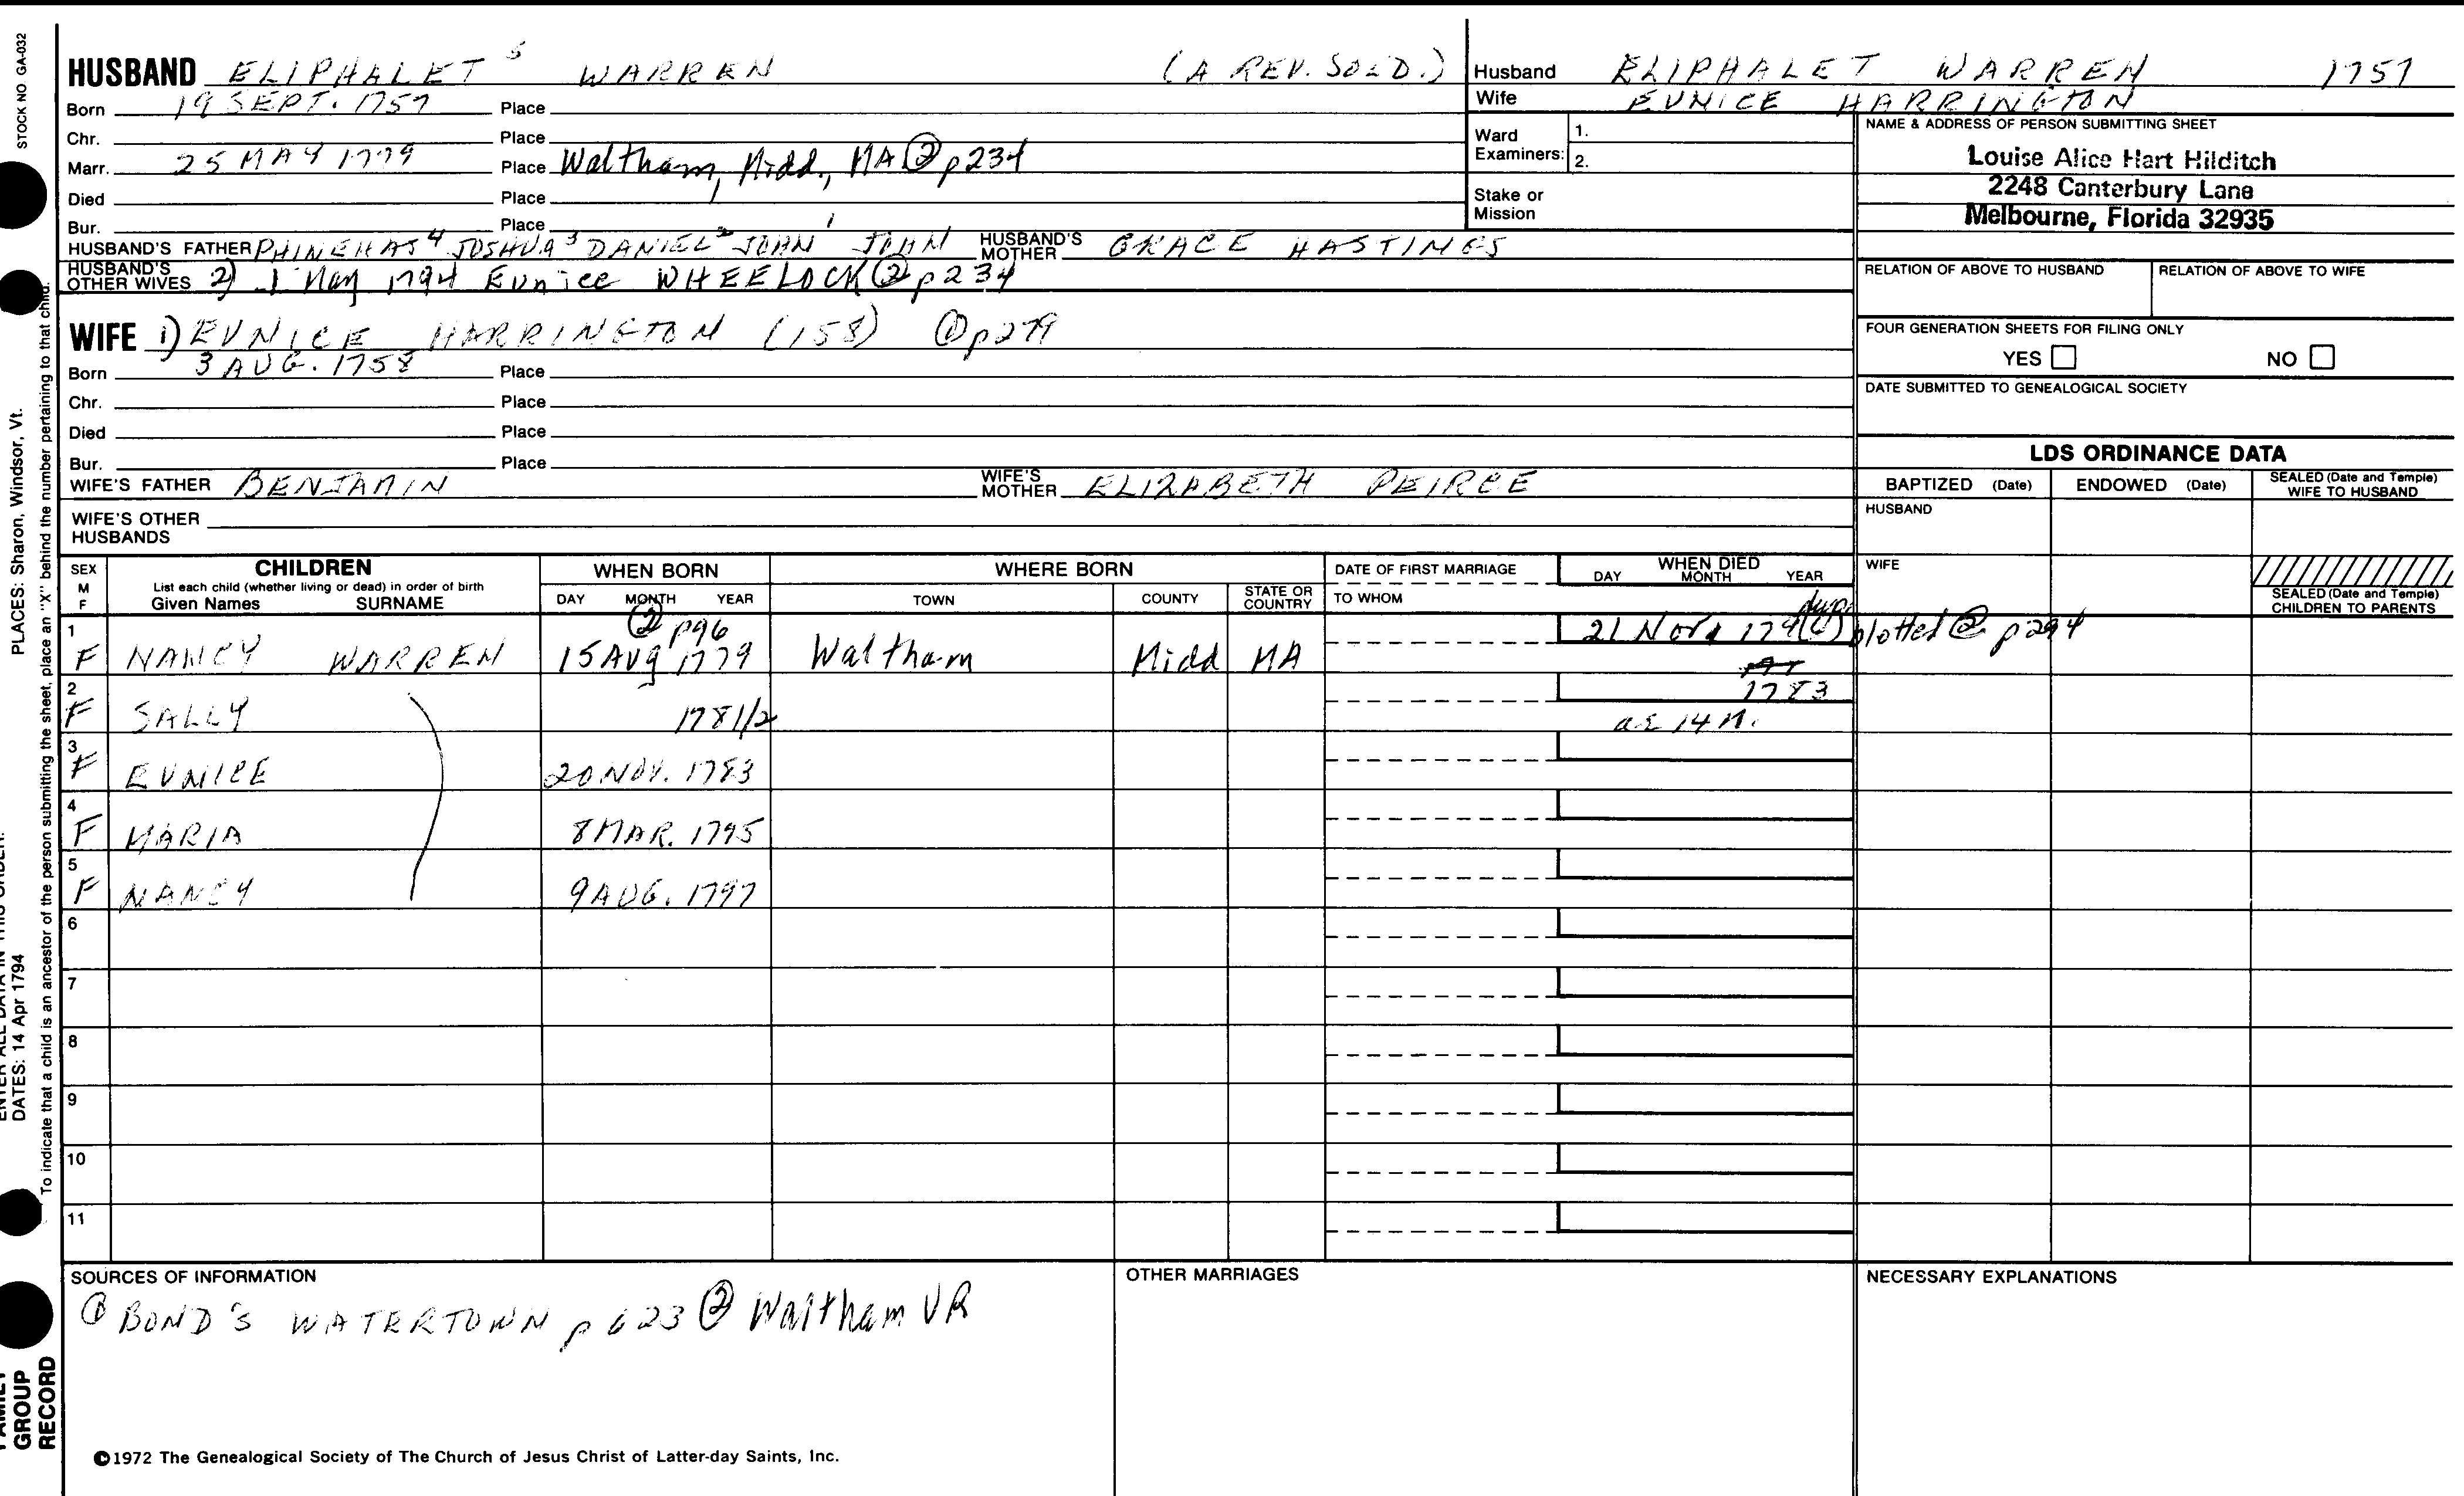 STOCK NO. GA-032
HUSBAND ELIPHALET 5 WARREN (A REV. SOLD.)
Born 19 SEPT. 1757 Place
Chr. Place
Marr. 25 MAY 1779 Place Waltham, Midd., MA ② p234
Died Place
Bur. Place
HUSBAND'S FATHER PHINEHAS 4 JOSHUA 3 DANIEL 2 JOHN 1 JOHN HUSBAND'S MOTHER GRACE HASTINGS
HUSBAND'S OTHER WIVES 2) 1 May 1794 Eunice WHEELOCK ② p234
WIFE 1) EUNICE HARRINGTON (158) ① p279
Born 3 AUG. 1758 Place
Chr. Place
Died Place
Bur. Place
WIFE'S FATHER BENJAMIN WIFE'S MOTHER ELIZABETH PEIRCE
WIFE'S OTHER HUSBANDS
Husband ELIPHALET WARREN 1757
Wife EUNICE HARRINGTON
Ward Examiners: 1.
2.
Stake or Mission
NAME & ADDRESS OF PERSON SUBMITTING SHEET
Louise Alice Hart Hilditch
2248 Canterbury Lane
Melbourne, Florida 32935
RELATION OF ABOVE TO HUSBAND RELATION OF ABOVE TO WIFE
FOUR GENERATION SHEETS FOR FILING ONLY
YES NO
DATE SUBMITTED TO GENEALOGICAL SOCIETY
LDS ORDINANCE DATA
BAPTIZED (Date) ENDOWED (Date) SEALED (Date and Temple) WIFE TO HUSBAND
HUSBAND
WIFE
SEALED (Date and Temple) CHILDREN TO PARENTS
SEX M F
CHILDREN
List each child (whether living or dead) in order of birth
Given Names SURNAME
WHEN BORN
DAY MONTH YEAR
WHERE BORN
TOWN COUNTY STATE OR COUNTRY
DATE OF FIRST MARRIAGE
TO WHOM
WHEN DIED
DAY MONTH YEAR
② p96
1 F NANCY WARREN 15 Aug 1779 Waltham Midd MA 21 179 blotted ② p294
2 F SALLY 1781/2 1783
ae 14 M.
3 F EUNICE 20 NOV. 1783
4 F MARIA 8 MAR. 1795
5 F NANCY 9 AUG. 1797
6
7
8
9
10
11
SOURCES OF INFORMATION
① BOND'S WATERTOWN p 623 ② Waltham VR
OTHER MARRIAGES
NECESSARY EXPLANATIONS
©1972 The Genealogical Society of The Church of Jesus Christ of Latter-day Saints, Inc.
PLACES: Sharon, Windsor, Vt.
DATES: 14 Apr 1794
To indicate that a child is an ancestor of the person submitting the sheet, place an "X" behind the number pertaining to that child.
GROUP
RECORD